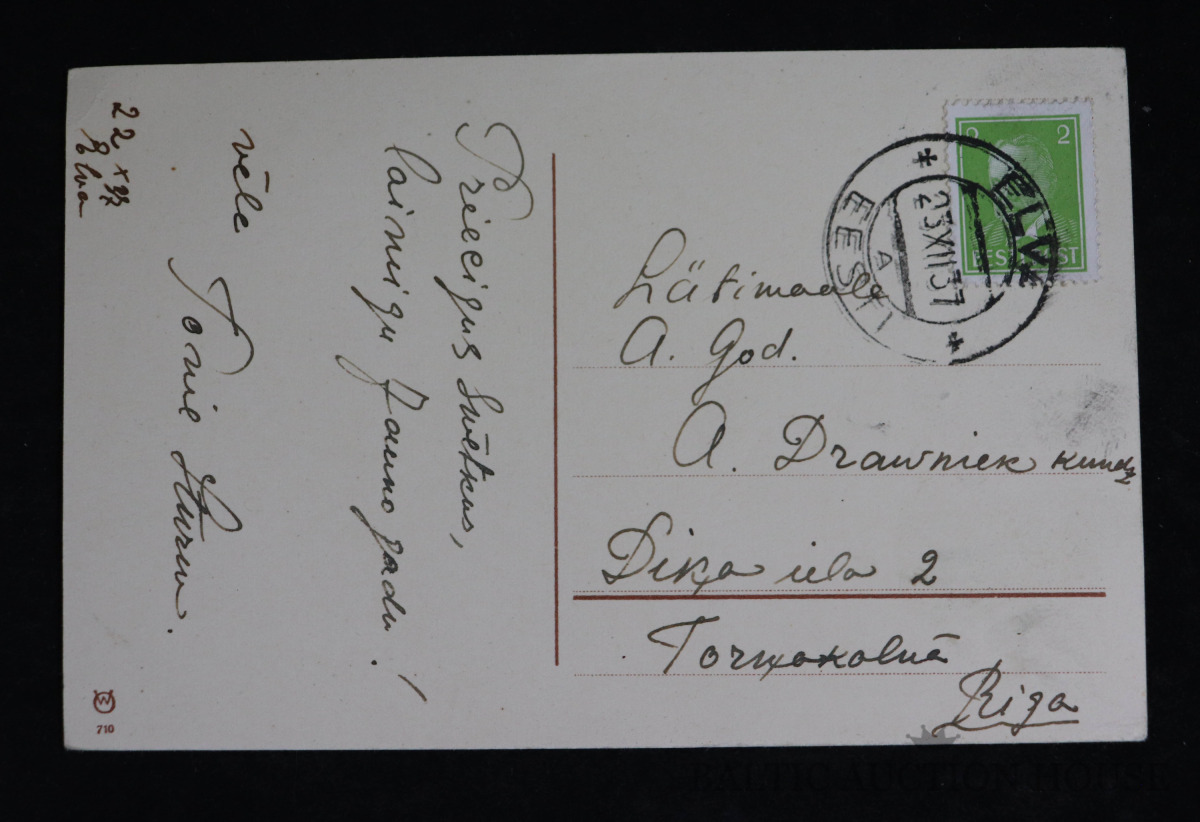 22 XII 37
Elva
Priecigus Swētkus,
laimigu Jauno gadu!
vēle
Tonie Sturm.
710
2 2
EESTI POST
ELVA
23 XII 37
A
EESTI
Lätimaale
A. God.
A. Drawniek kundz
Dīķa iela 2
Torņakalnā
Riga
BALTIC AUCTION HOUSE